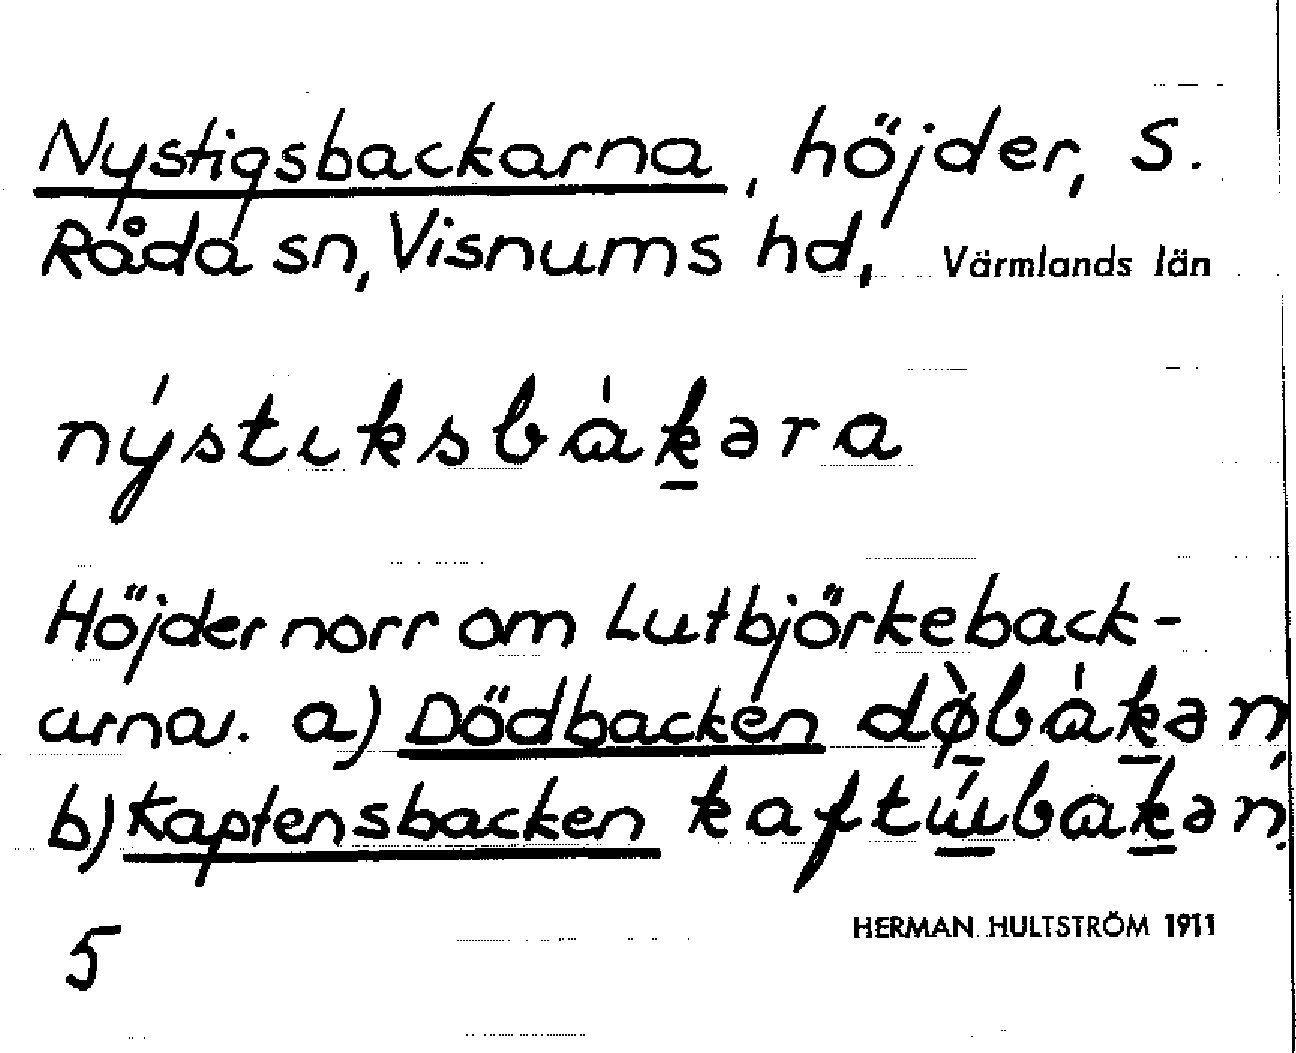 Nystigsbackarna, höjder, S.
Råda sn, Visnums hd, Värmlands län
nýstiksbákara
Höjder norr om Lutbjörkeback-
arna. a) Dödbacken
b) Kaptensbacken
5
HERMAN HULTSTRÖM 1911